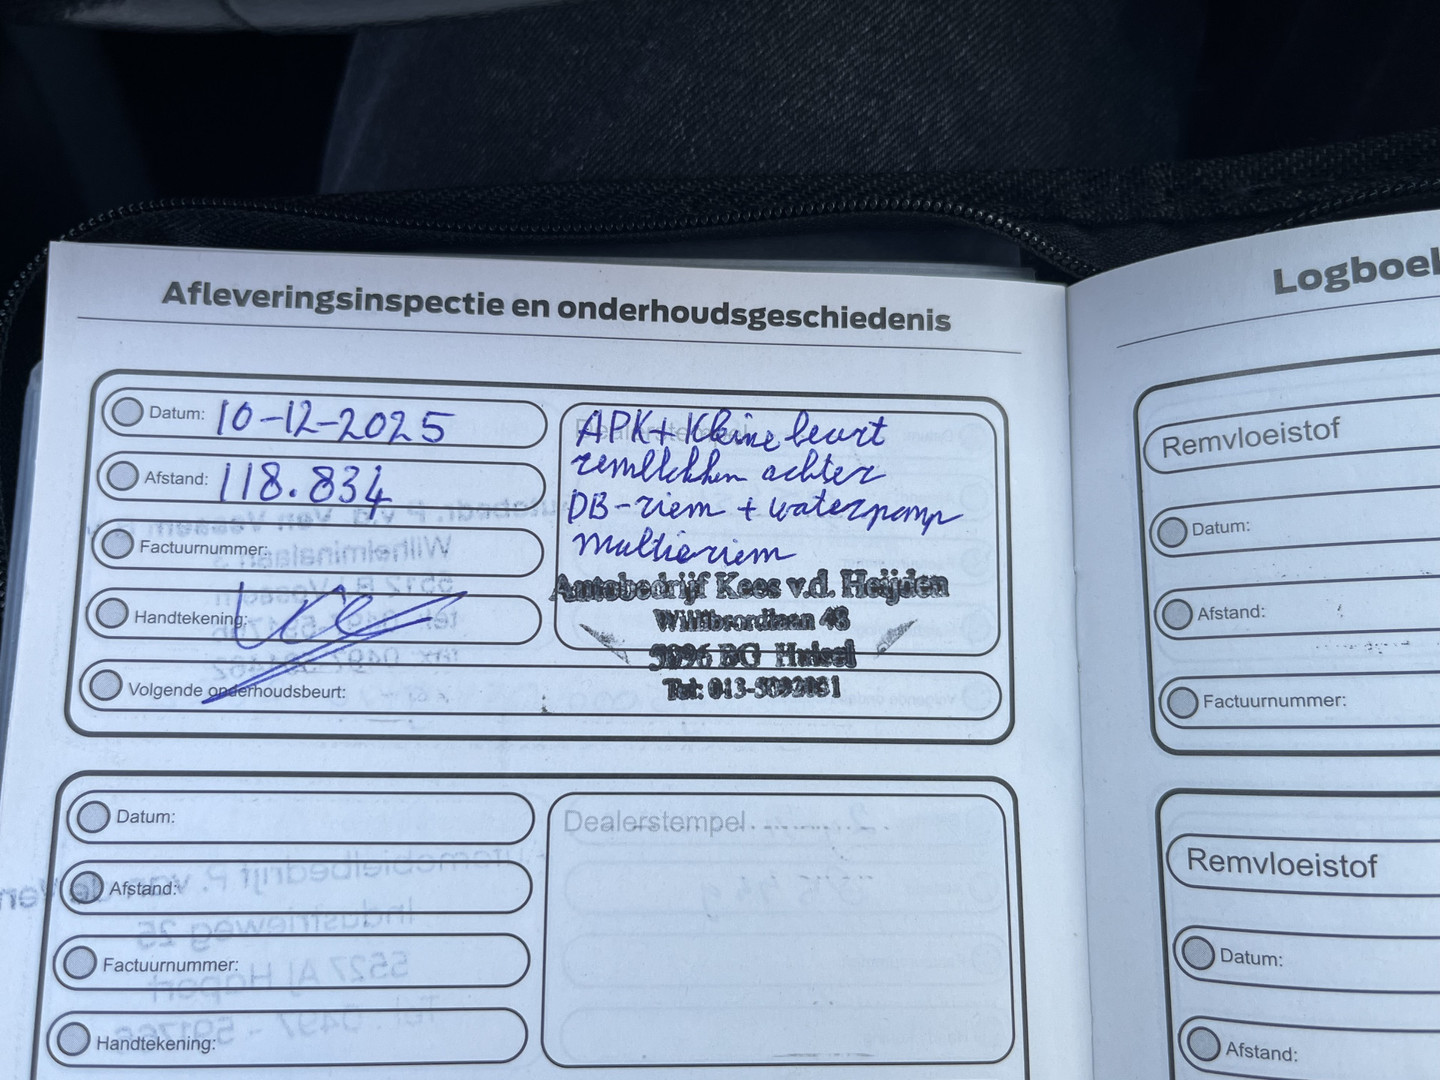 Afleveringsinspectie en onderhoudsgeschiedenis
Datum: 10-12-2025
Afstand: 118.834
Factuurnummer:
Handtekening:
Volgende onderhoudsbeurt:
Dealerstempel
APK + Kleine beurt
remblokken achter
DB-riem + waterpomp
multieriem
Autobedrijf Kees v.d. Heijden
Willibrordlaan 48
BG Hulsel
Tel: 013-5092061
Datum:
Afstand:
Factuurnummer:
Handtekening:
Dealerstempel
Remvloeistof
Datum:
Afstand:
Factuurnummer:
Remvloeistof
Datum:
Afstand: